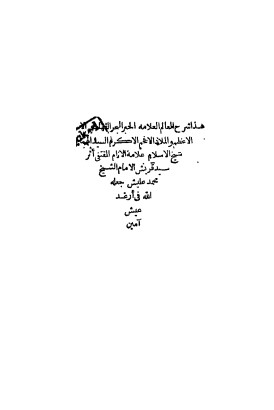 هذا شرح العالم العلامه الحبر البحر
الاعظم والملاذ الافخم الاكرم السيد
شيخ الاسلام علامة الانام المقتفى أثر
سيد قريش الامام الشيخ
محمد عليش جعله
الله فى أرغد
عيش
آمين